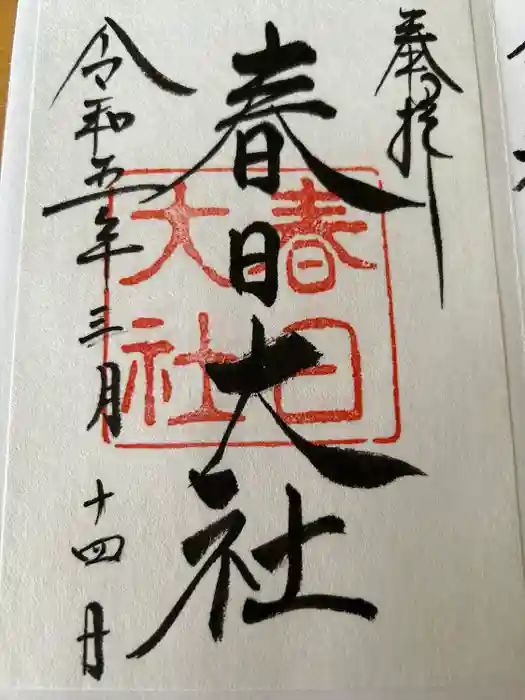 奉拝
春日大社
春日
大社
令和五年三月十四日